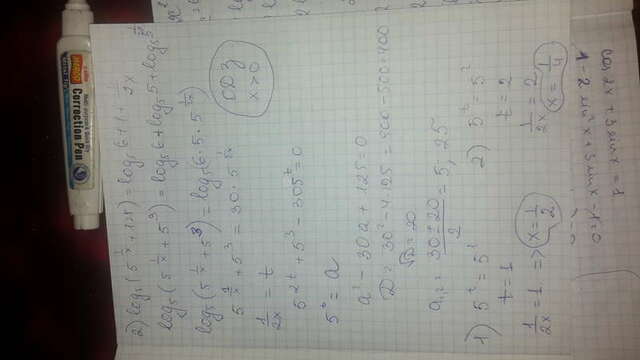 2) log₅(5^(1/x) + 125) = log₅ 6 + 1 + 1/2x
log₅(5^(1/x) + 5³) = log₅ 6 + log₅ 5 + log₅ 5^(1/2x)
log₅(5^(1/x) + 5³) = log₅(6·5·5^(1/2x))
5^(1/x) + 5³ = 30·5^(1/2x)
ОДЗ
x>0
1/2x = t
5^2t + 5³ - 30 5^t = 0
5^t = a
a² - 30a + 125 = 0
D = 30² - 4·125 = 900 - 500 = 400
√D = 20
a₁,₂ = (30±20)/2 = 5; 25
1) 5^t = 5¹
t = 1
1/2x = 1 => x = 1/2
2) 5^t = 5²
t = 2
1/2x = 2
x = 1/4
cos 2x + 3 sin x = 1
1 - 2 sin²x + 3 sin x - 1 = 0
Correction Pen